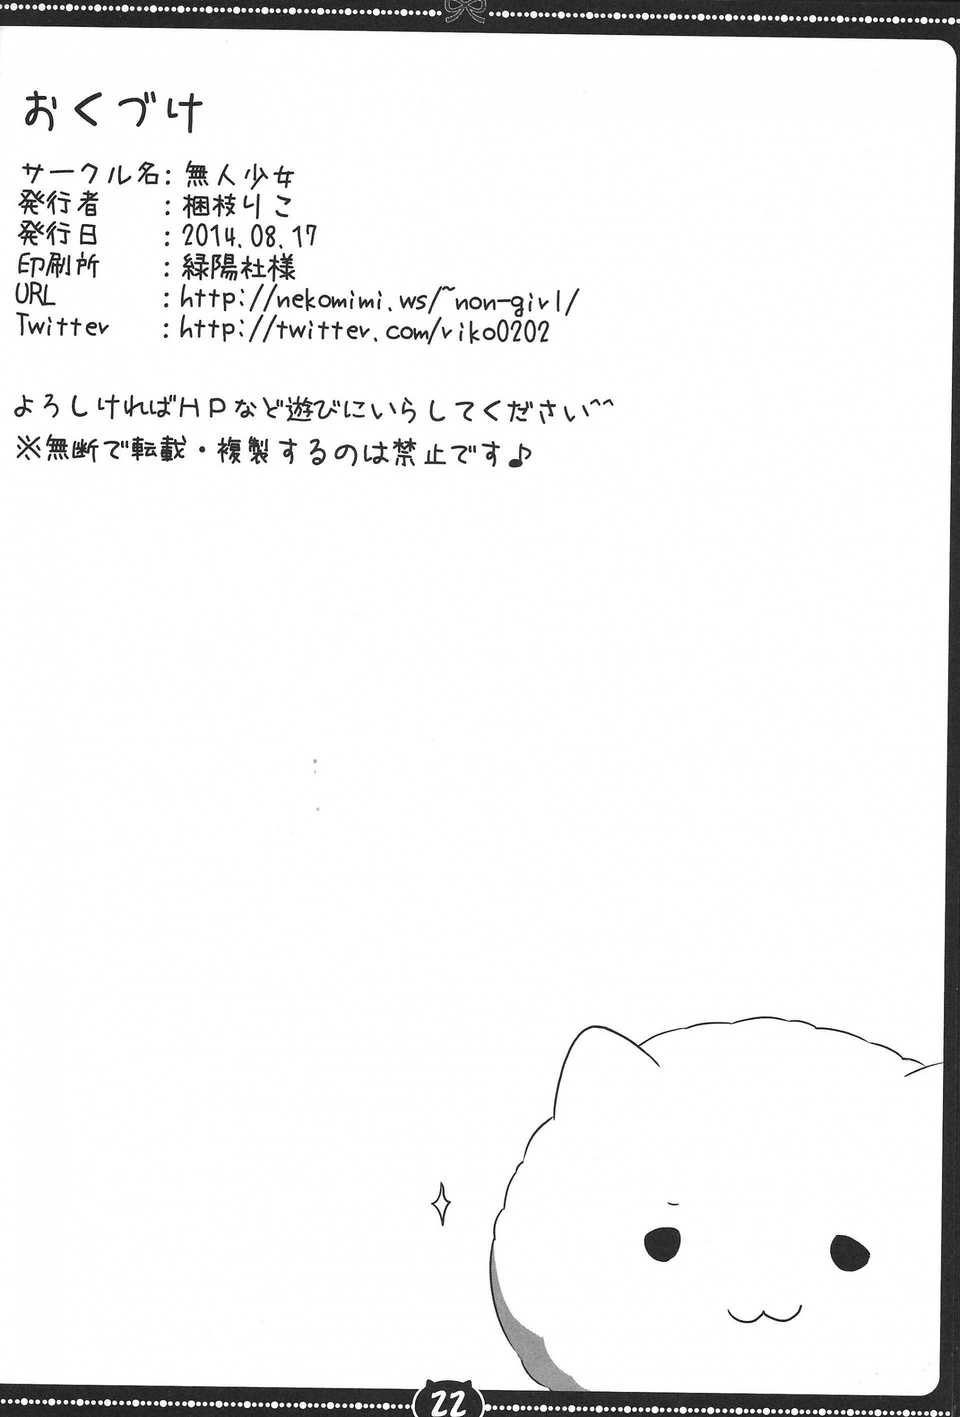 おくづけ
サークル名: 無人少女
発行者 : 梱枝りこ
発行日 : 2014.08.17
印刷所 : 緑陽社様
URL : http://nekomimi.ws/~non-girl/
Twitter : http://twitter.com/riko0202
よろしければHPなど遊びにいらしてください^^
※無断で転載・複製するのは禁止です♪
22